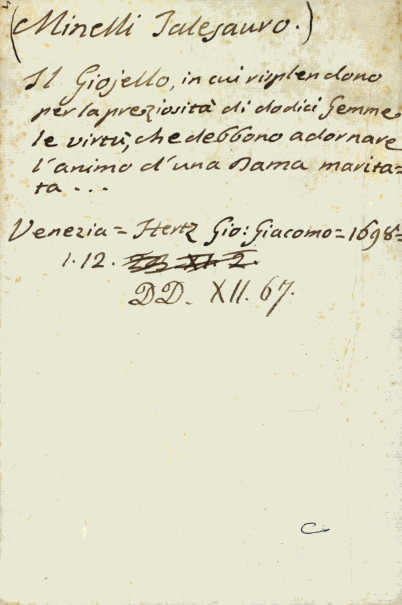 (Minelli Talesauro.)
Il Giojello, in cui risplendono
per la preziosità di dodici Gemme
le virtù, che debbono adornare
l'animo d'una Dama marita=
ta...
Venezia = Hertz Gio: Giacomo = 1698 =
1.12.
DD. XII. 67.
C